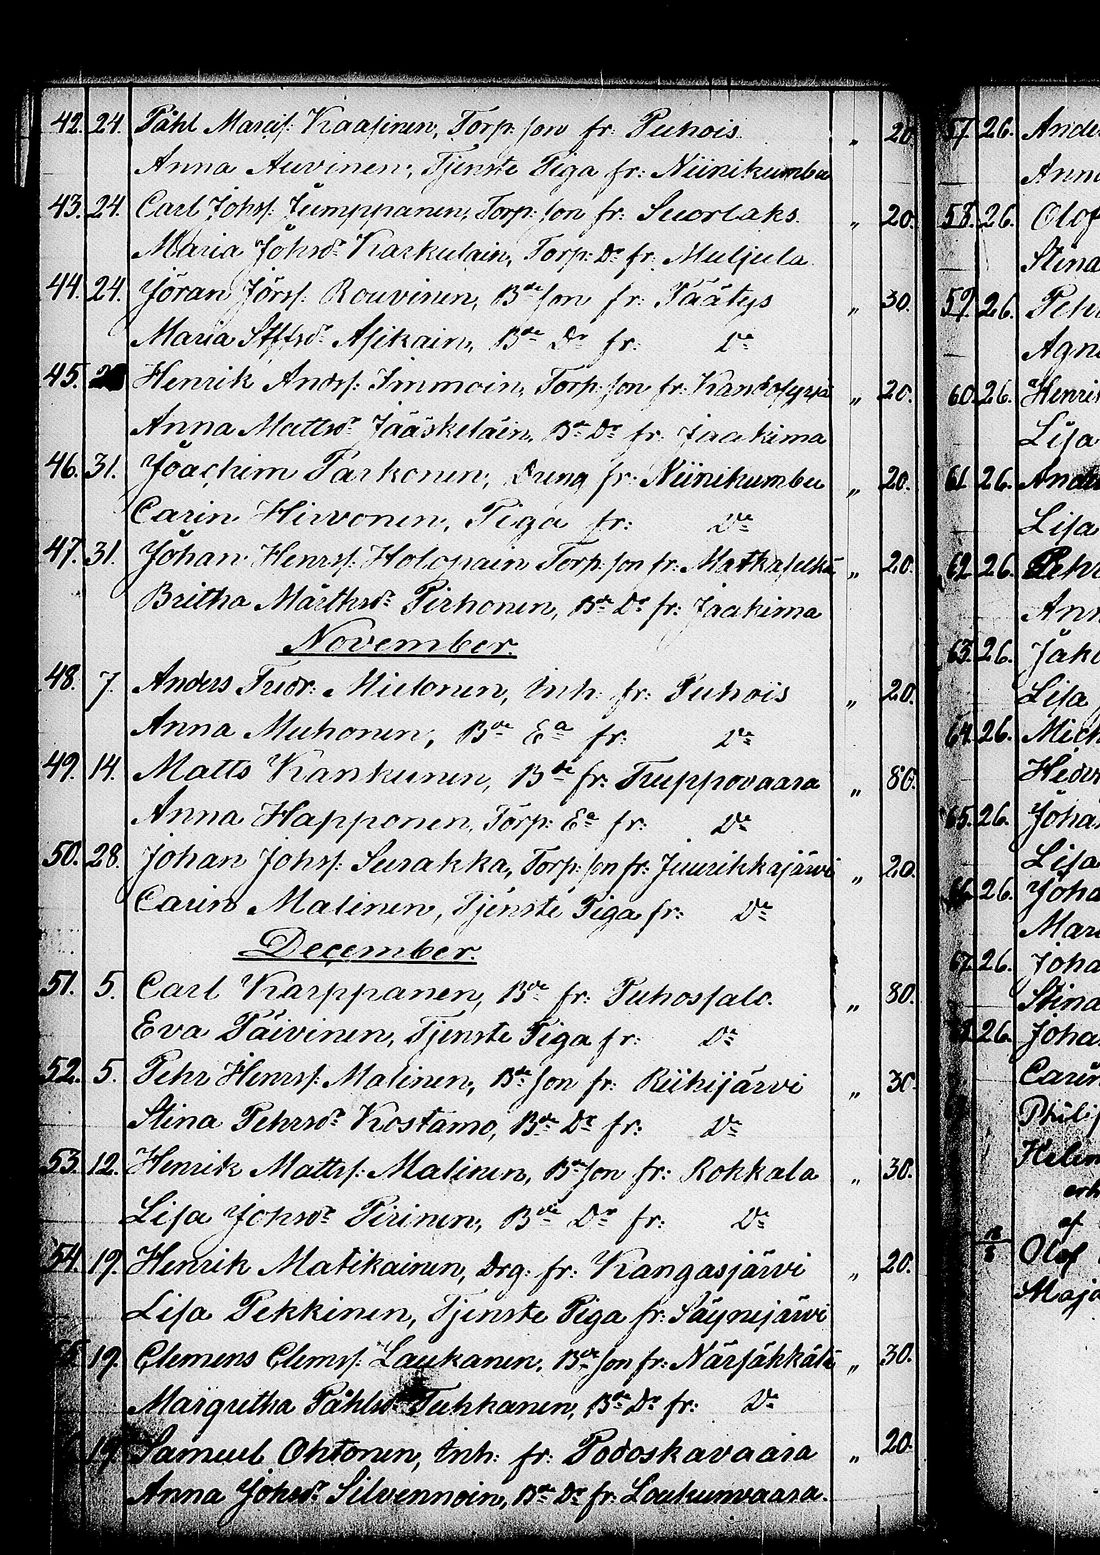 42. 24. Påhl Marcis: Kaasinen, Torp: son fr: Puhois. " 20.
Anna Auvinen, Tjenste Piga fr: Niinikumbu
43. 24. Carl Johss: Jumppanen, Torp: son fr: Suorlaks. " 20.
Maria Johsdr Karkulain, Torp: Dr fr: Muljula.
44. 24. Jöran Jörss: Rouvinen, Bde son fr: Päätys " 30.
Maria Stffsdr Asikain, Bde Dr fr: Do
45. Henrik Andrs: Immoin, Torp: son fr: " 20.
Anna Mattsdr Jääskeläin, Bde Dr fr: Jaakima
46. 31. Joachim Parkonen, Dreng fr: Niinikumbu " 20.
Carin Hirvonen, Piga fr: Do
47. 31. Johan Henrss: Holopain Torp: son fr: Matkaselkä " 20.
Britha Mårthsdr Pirhonen, Bde Dr fr: Jaakima
November.
48. 7. Anders Fredr: Mielonen, Inh: fr: Puhois " 20.
Anna Muhonen, Bde Ea fr: Do
49. 14. Matts Kankunen, Bde fr: Truppovaara " 80.
Anna Happonen, Torp: Ea fr: Do
50. 28. Johan Johss: Surakka, Torp: son fr: Juurikkajärvi " 20.
Carin Malinen, Tjenste Piga fr: Do
December.
51. 5. Carl Karppanen, Bde fr: Puhossalo. " 80.
Eva Päivinen, Tjenste Piga fr: Do
52. 5. Pehr Henrss: Malinen, Bde son fr: Riihijärvi " 30.
Stina Pehrsdr Kostamo, Bde Dr fr: Do
53. 12. Henrik Mattss: Malinen, Bde son fr: Rokkala " 30.
Lisa Johsdr Pirinen, Bde Dr fr: Do
54. 19. Henrik Matikainen, Drg: fr: Kangasjärvi " 20.
Lisa Pekkinen, Tjenste Piga fr: Säynejärvi
55. 19. Clemens Clemss: Laukanen, Bde son fr: Närsähkälä " 30.
Margretha Påhlsdr Tuhkanen, Bde Dr fr: Do
19. Samuel Ohtonen, Inh: fr: Podoskavaara " 20.
Anna Johsdr Silvennoin, Bde Dr fr: Loukunvaara.
57. 26. Ande
Anna
58. 26. Olof
Stina
59. 26. Pehr
Agne
60. 26. Henrik
Lisa
61. 26. Ander
Lisa
62. 26. Pehr
Ann
63. 26. Jako
Lisa
64. 26. Mich
Hedv
65. 26. Johan
Lisa
66. 26. Joha
Mari
67. 26. Joha
Stina
26. Johan
Carin
Philip
Helen
erh
af
Olof
Maja